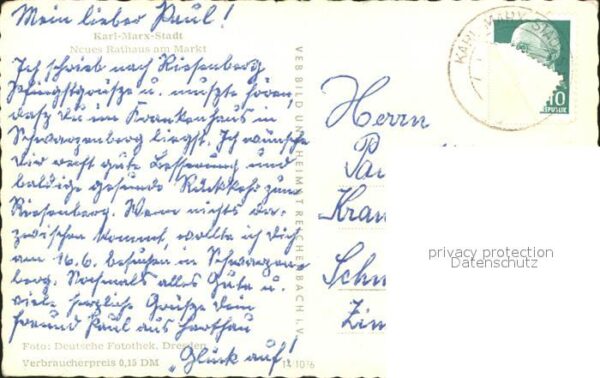 Mein lieber Paul!
Karl-Marx-Stadt
Neues Rathaus am Markt
Ich schrieb nach Riesenberg
Pfingstgrüße u. mußte hören,
dasz Du im Krankenhaus in
Schwarzenberg liegst. Ich wünsche
Dir recht gute Besserung und
baldige gesunde Rückkehr zum
Riesenberg. Wenn nichts da-
zwischen kommt, wollte ich Dich
am 16.6. besuchen in Schwarzen-
berg. Nochmals alles Gute u.
viele herzliche Grüße Dein
Freund Paul aus Harthau
"Glück auf!"
Foto: Deutsche Fotothek, Dresden
Verbraucherpreis 0,15 DM
VEB BILD UND HEIMAT REICHENBACH i. V.
KARL-MARX-STADT
10
Herrn
Pau
Kran
Schw
Zim
privacy protection
Datenschutz